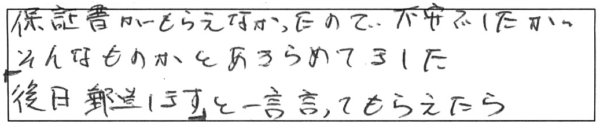 保証書がもらえなかったので、不安でしたが、
そんなものかとあきらめてました
「後日郵送します」と一言言ってもらえたら